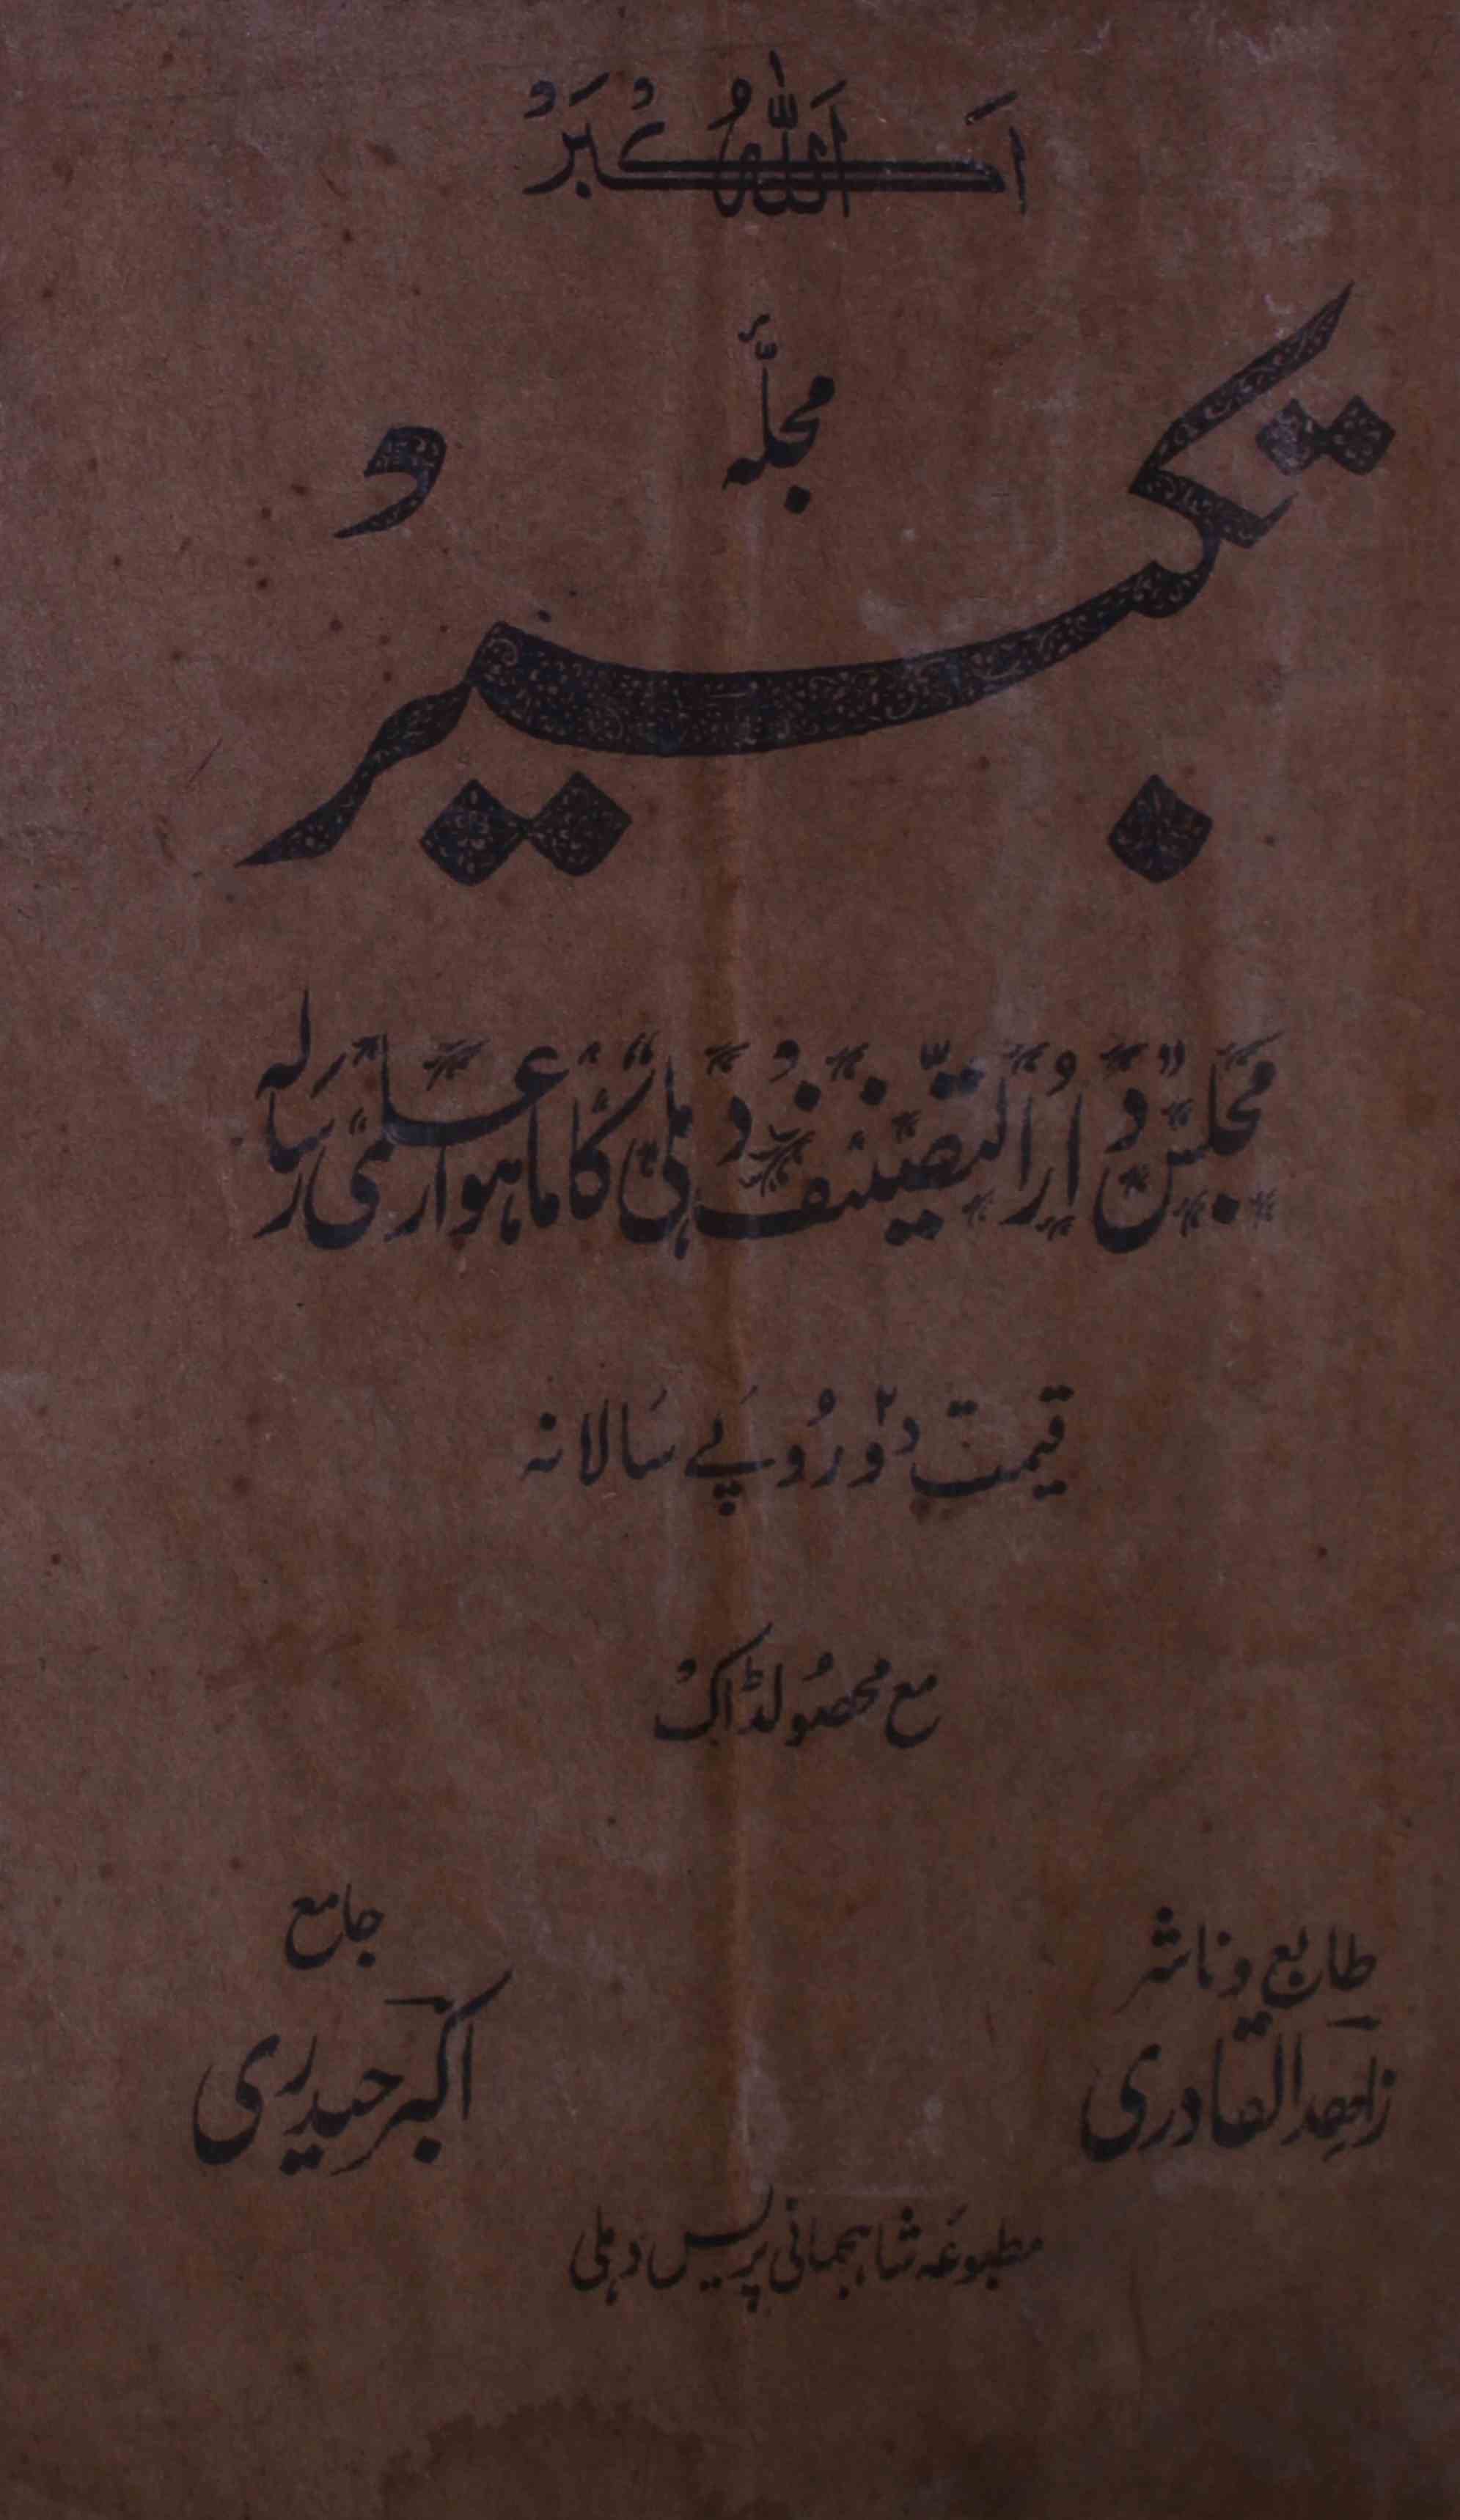 اَللّٰهُ اَكْبَرُ
مجلّہٴ
تکبیرُ
مجلس دارُالتصنیف دہلی کا ماہوار علمی رسالہ
قیمت دو۲ روپے سالانہ
مع محصولڈاک
طابع و ناشر
زاہدالقادری
جامع
اکبر حیدری
مطبوعہ شاہجہانی پریس دہلی